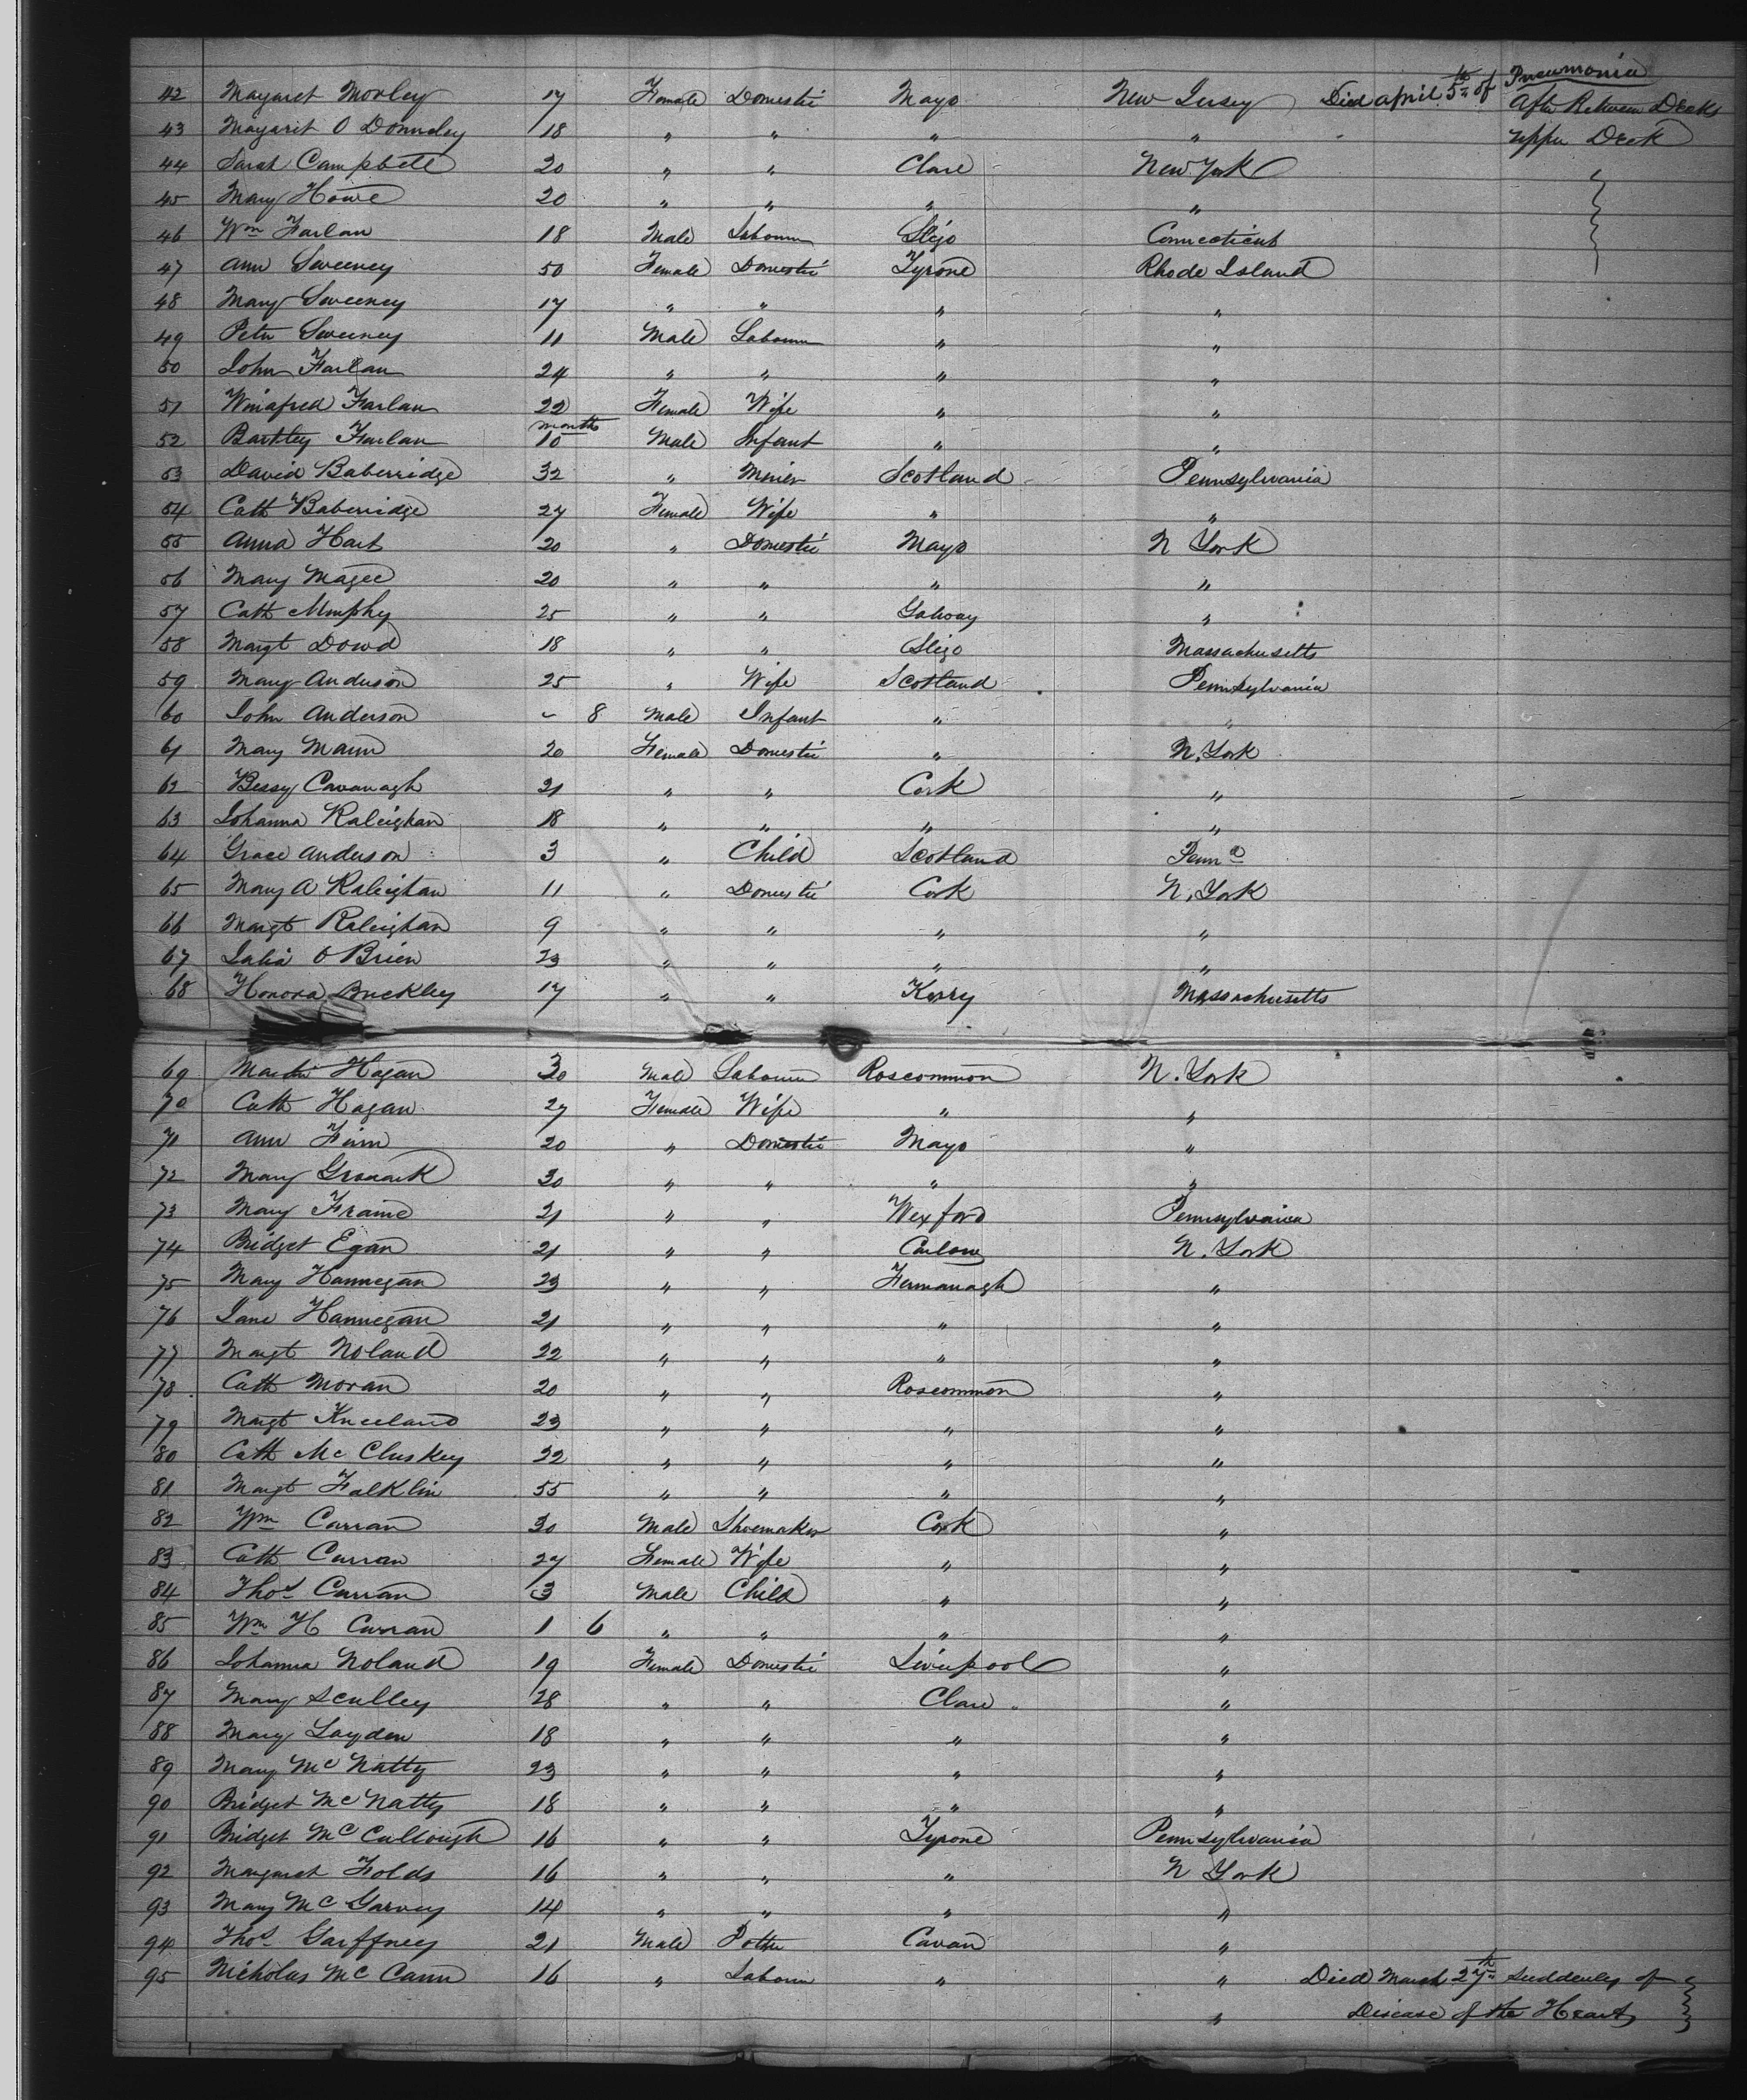 42 Margaret Morley 17 Female Domestic Mayo New Jersey Died April 5th of Pneumonia After Between Decks
43 Margaret O Donneley 18 " " " " Upper Deck
44 Sarah Campbell 20 " " Clare New York
45 Mary Howe 20 " " " "
46 Wm Farlan 18 Male Labourer Sligo Connecticut
47 Ann Sweeney 50 Female Domestic Tyrone Rhode Island
48 Mary Sweeney 17 " " " "
49 Peter Sweeney 11 Male Labourer " "
50 John Farlan 24 " " " "
51 Winafred Farlan 22 Female Wife " "
52 Bartley Farlan months 10 Male Infant " "
53 David Baberridge 32 " Miner Scotland Pennsylvania
54 Cath Baberridge 27 Female Wife " "
55 Anna Hart 20 " Domestic Mayo N York
56 Mary Magee 20 " " " "
57 Cath Murphy 25 " " Galway "
58 Margt Dowd 18 " " Sligo Massachusetts
59 Mary Anderson 25 " Wife Scotland Pennsylvania
60 John Anderson - 8 Male Infant " "
61 Mary Mann 20 Female Domestic " N. York
62 Bessy Cavanagh 21 " " Cork "
63 Johanna Raleighan 18 " " " "
64 Grace Anderson 3 " Child Scotland Penna
65 Mary A Raleighan 11 " Domestic Cork N. York
66 Margt Raleighan 9 " " " "
67 Julia O Brien 23 " " " "
68 Honora Buckley 17 " " Kerry Massachusetts
69 Martin Hagan 30 Male Labourer Roscommon N. York
70 Cath Hagan 27 Female Wife " "
71 Ann Finn 20 " Domestic Mayo "
72 Mary 30 " " " "
73 Mary Frame 21 " " Wexford Pennsylvania
74 Bridget Egan 21 " " Carlow N. York
75 Mary Hannegan 23 " " Fermanagh "
76 Jane Hannegan 21 " " " "
77 Margt Noland 22 " " " "
78 Cath Moran 20 " " Roscommon "
79 Margt Kneeland 23 " " " "
80 Cath Mc Cluskey 22 " " " "
81 Margt Falklin 55 " " " "
82 Wm Curran 30 Male Shoemaker Cork "
83 Cath Curran 27 Female Wife " "
84 Thos Curran 3 Male Child " "
85 Wm H Curran 1 6 " " " "
86 Johanna Noland 19 Female Domestic Liverpool "
87 Mary Sculley 28 " " Clare "
88 Mary Layden 18 " " " "
89 Mary Mc Natty 23 " " " "
90 Bridget Mc Natty 18 " " " "
91 Bridget Mc Cullough 16 " " Tyrone Pennsylvania
92 Margaret Folds 16 " " " N York
93 Mary Mc Garvey 14 " " " "
94 Thos Gaffney 21 Male Potter Cavan "
95 Nicholas Mc Cann 16 " Labourer " " Died March 27th Suddenly of
" Disease of the Heart